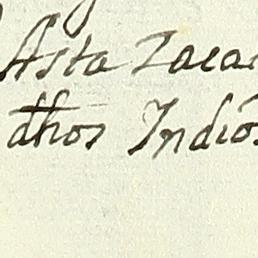 Asta Zaca
dhos Indios